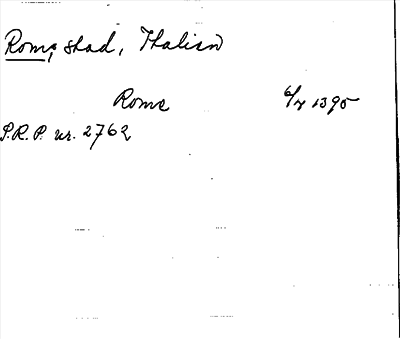 Rome, stad, Italien
Rome 6/4 1395
S.R.P. nr. 2762